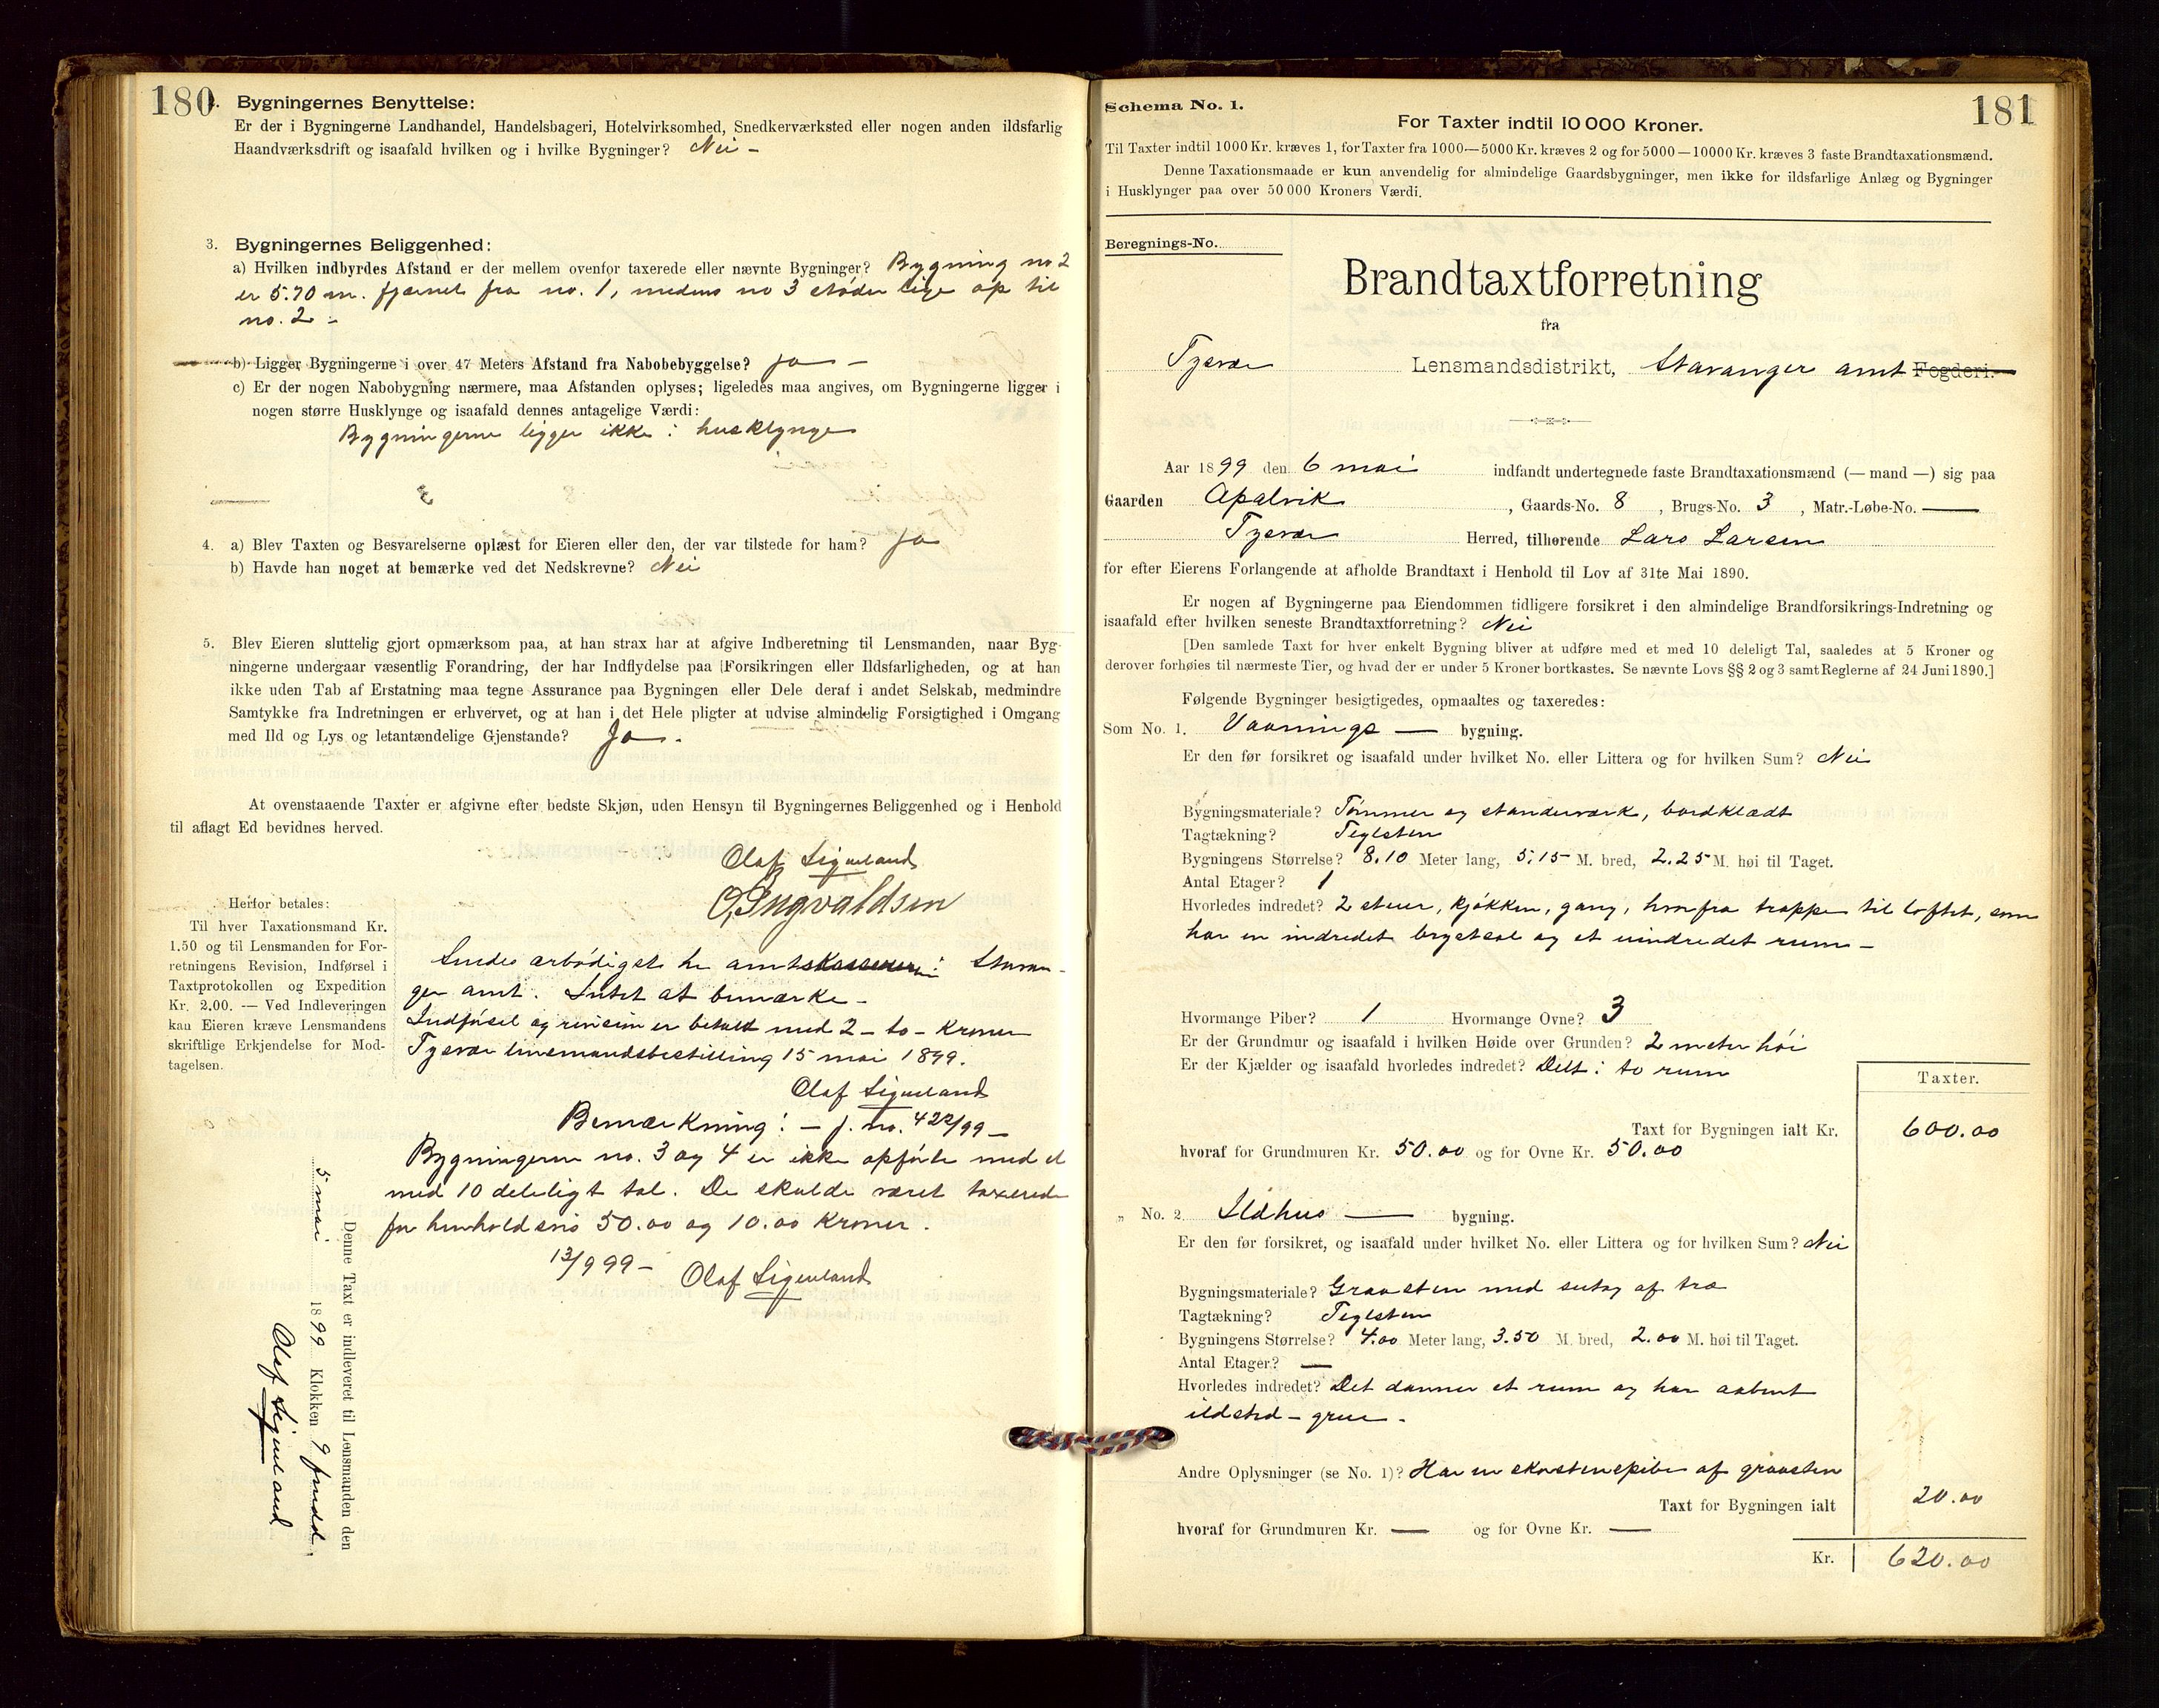 180
2. Bygningernes Benyttelse:
Er der i Bygningerne Landhandel, Handelsbageri, Hotelvirksomhed, Snedkerværksted eller nogen anden ildsfarlig
Haandværksdrift og isaafald hvilken og i hvilke Bygninger? Nei –
3. Bygningernes Beliggenhed:
a) Hvilken indbyrdes Afstand er der mellem ovenfor taxerede eller nævnte Bygninger? Bygning no 2
er 5.70 m. fjærnet fra no. 1, medens no 3 støder lige op til
no. 2 –
b) Ligger Bygningerne i over 47 Meters Afstand fra Nabobebyggelse? Ja –
c) Er der nogen Nabobygning nærmere, maa Afstanden oplyses; ligeledes maa angives, om Bygningerne ligger i
nogen større Husklynge og isaafald dennes antagelige Værdi:
Bygningerne ligger ikke i husklynge
4. a) Blev Taxten og Besvarelserne oplæst for Eieren eller den, der var tilstede for ham? Ja
b) Havde han noget at bemærke ved det Nedskrevne? Nei
5. Blev Eieren sluttelig gjort opmærksom paa, at han strax har at afgive Indberetning til Lensmanden, naar Byg-
ningerne undergaar væsentlig Forandring, der har Indflydelse paa Forsikringen eller Ildsfarligheden, og at han
ikke uden Tab af Erstatning maa tegne Assurance paa Bygningen eller Dele deraf i andet Selskab, medmindre
Samtykke fra Indretningen er erhvervet, og at han i det Hele pligter at udvise almindelig Forsigtighed i Omgang
med Ild og Lys og letantændelige Gjenstande? Ja.
At ovenstaaende Taxter er afgivne efter bedste Skjøn, uden Hensyn til Bygningernes Beliggenhed og i Henhold
til aflagt Ed bevidnes herved.
Olaf Sigueland
O. Ingvaldsen
Herfor betales:
Til hver Taxationsmand Kr.
1.50 og til Lensmanden for For-
retningens Revision, Indførsel i
Taxtprotokollen og Expedition
Kr. 2.00. — Ved Indleveringen
kan Eieren kræve Lensmandens
skriftlige Erkjendelse for Mod-
tagelsen.
Sendes ærbødigst hr amtskasserer i Stavan-
ger amt. Intet at bemærke –
Indførsel og revision er betalt med 2 – to – Kroner
Tysvær lensmandsbestilling 15 mai 1899.
Olaf Sigueland
Bemærkning: – J. no. 422/99 –
Bygningerne no. 3 og 4 er ikke opførte med et
med 10 deleligt tal. De skulde været taxerede
for henholdsvis 50.00 og 10.00 Kroner.
13/9 99 – Olaf Sigueland
Denne Taxt er indleveret til Lensmanden den
5 mai 1899 Klokken 9 fmdd.
Olaf Sigueland
181
Schema No. 1.
For Taxter indtil 10 000 Kroner.
Til Taxter indtil 1000 Kr. kræves 1, for Taxter fra 1000—5000 Kr. kræves 2 og for 5000—10000 Kr. kræves 3 faste Brandtaxationsmænd.
Denne Taxationsmaade er kun anvendelig for almindelige Gaardsbygninger, men ikke for ildsfarlige Anlæg og Bygninger
i Husklynger paa over 50 000 Kroners Værdi.
Beregnings-No.
Brandtaxtforretning
fra
Tysvær Lensmandsdistrikt, Stavanger amt Fogderi.
Aar 1899 den 6 mai indfandt undertegnede faste Brandtaxationsmænd (— mand —) sig paa
Gaarden Apalvik, Gaards-No. 8, Brugs-No. 3, Matr.-Løbe-No. —
Tysvær Herred, tilhørende Lars Larsen
for efter Eierens Forlangende at afholde Brandtaxt i Henhold til Lov af 31te Mai 1890.
Er nogen af Bygningerne paa Eiendommen tidligere forsikret i den almindelige Brandforsikrings-Indretning og
isaafald efter hvilken seneste Brandtaxtforretning? Nei
[Den samlede Taxt for hver enkelt Bygning bliver at udføre med et med 10 deleligt Tal, saaledes at 5 Kroner og
derover forhøies til nærmeste Tier, og hvad der er under 5 Kroner bortkastes. Se nævnte Lovs §§ 2 og 3 samt Reglerne af 24 Juni 1890.]
Følgende Bygninger besigtigedes, opmaaltes og taxeredes:
Som No. 1. Vaanings — bygning.
Er den før forsikret og isaafald under hvilket No. eller Littera og for hvilken Sum? Nei
Bygningsmateriale? Tømmer og standerværk, bordklædt
Tagtækning? Teglsten
Bygningens Størrelse? 8.10 Meter lang, 5.15 M. bred, 2.25 M. høi til Taget.
Antal Etager? 1
Hvorledes indredet? 2 stuer, kjøkken, gang, hvorfra trappe til loftet, som
har en indredet brystsal og et uindredet rum –
Hvormange Piber? 1 Hvormange Ovne? 3
Er der Grundmur og isaafald i hvilken Høide over Grunden? 2 meter høi
Er der Kjælder og isaafald hvorledes indredet? Delt i to rum
Taxter.
Taxt for Bygningen ialt Kr. 600.00
hvoraf for Grundmuren Kr. 50.00 og for Ovne Kr. 50.00
„ No. 2. Ildhus — bygning.
Er den før forsikret, og isaafald under hvilket No. eller Littera og for hvilken Sum? Nei
Bygningsmateriale? Graasten med sutag af træ
Tagtækning? Teglsten
Bygningens Størrelse? 4.00 Meter lang, 3.50 M. bred, 2.00 M. høi til Taget.
Antal Etager? —
Hvorledes indredet? Det danner et rum og har aabent
ildsted – grue –
Andre Oplysninger (se No. 1)? Har en skorstenspibe af graasten
Taxt for Bygningen ialt 20.00
hvoraf for Grundmuren Kr. — og for Ovne Kr. —
Kr. 620.00